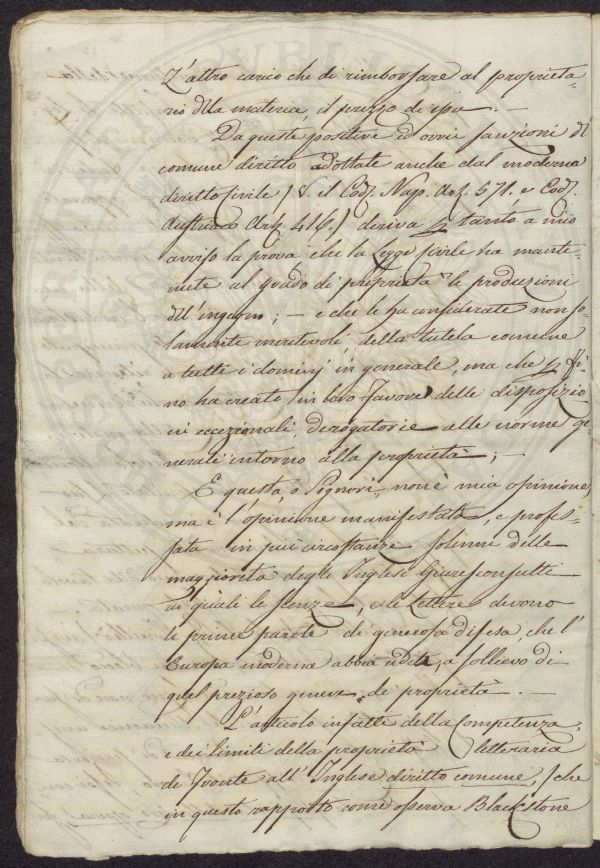 L'altro carico che di rimborsare al proprieta=
rio della materia, il prezzo di essa. —
Da queste positive ed ovvie sanzioni di
comune diritto adottate anche dal moderno
diritto civile / V. il Cod. Nap. Art. 571. e Cod.
Austriaco Art. 416. / deriva tanto a mio
avviso la prova, che la Legge civile ha mante=
nute al grado di proprietà le produzioni
dell'ingegno; — e che le ha considerate non so=
lamente meritevoli, della tutela comune
a tutti i dominj in generale, ma che fi=
no ha create in loro favore delle disposizio
ni eccezionali, derogatorie alle norme ge=
nerali intorno alla proprietà; —
E questa, o Signori, non è mia opinione,
ma è l'opinione manifestata, e profes=
sata in più circostanze solenni delle
maggiorità degli Inglesi Giureconsulti
ai quali le scienze, e le Lettere devono
le prime parole di generosa difesa, che l'
Europa moderna abbia udite, a sollievo di
quel prezioso genere di proprietà. —
L'articolo infatti della Competenza,
e dei limiti della proprietà letteraria
di fronte all'Inglese diritto comune, / che
in questo rapporto come osserva Blackstone